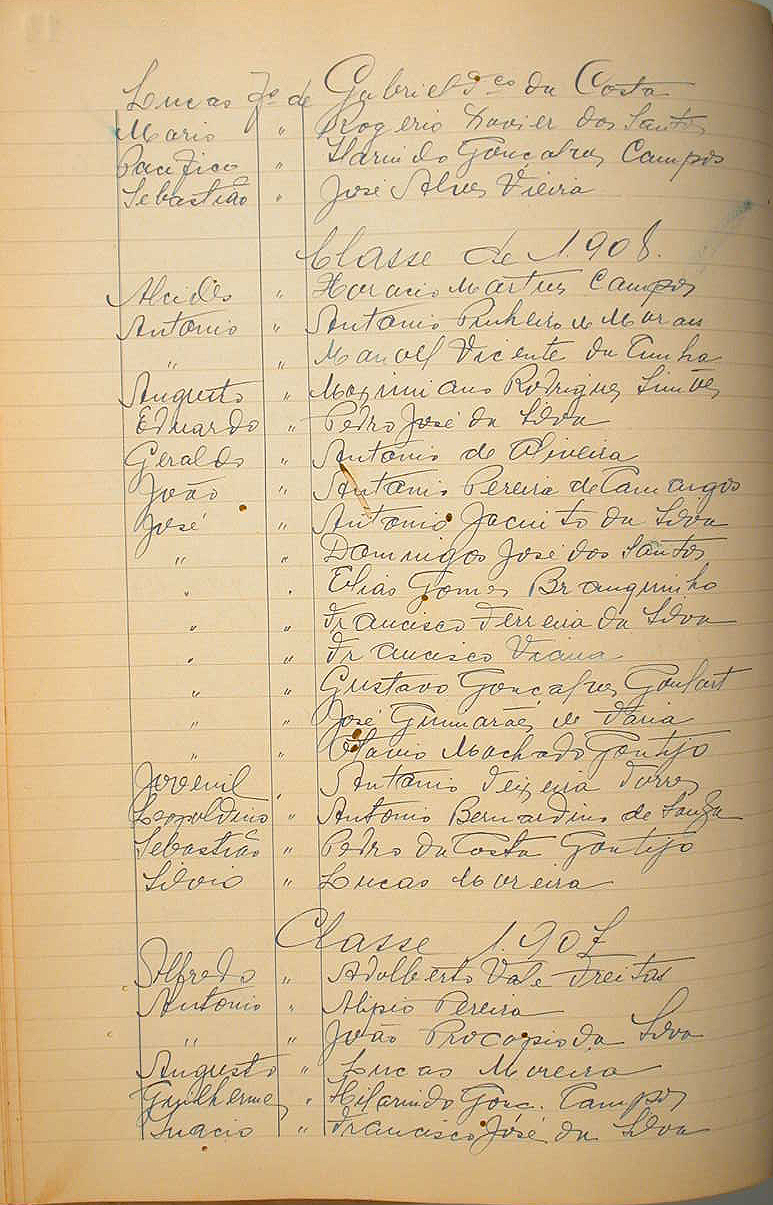 Lucas fo de Gabriel Fco da Costa
Mario " Rogerio Xavier dos Santos
Pacifico " Ilarindo Gonçalves Campos
Sebastião " José Alves Vieira
Classe de 1.908.
Alcides " Horacio Martins Campos
Antonio " Antonio Pinheiro de Morais
" " Manoel Vicente da Cunha
Augusto " Maximiano Rodrigues Simões
Eduardo " Pedro José da Silva
Geraldo " Antonio de Oliveira
João " Antonio Pereira de Camargos
José " Antonio Jacinto da Silva
" " Domingos José dos Santos
" " Elias Gomes Branquinho
" " Francisco Ferreira da Silva
" " Francisco Viana
" " Gustavo Gonçalves Goulart
" " José Guimarães de Faria
" " Otavio Machado Gontijo
Jovenil " Antonio Teixeira Torres
Leopoldino " Antonio Bernardino de Souza
Sebastião " Pedro da Costa Gontijo
Silvio " Lucas Moreira
Classe 1.907
Alfredo " Adolberto Vale Freitas
Antonio " Alipio Pereira
" " João Procopio da Silva
Augusto " Lucas Moreira
Guilherme " Hilarindo Gonc. Campos
Inacio " Francisco José da Silva